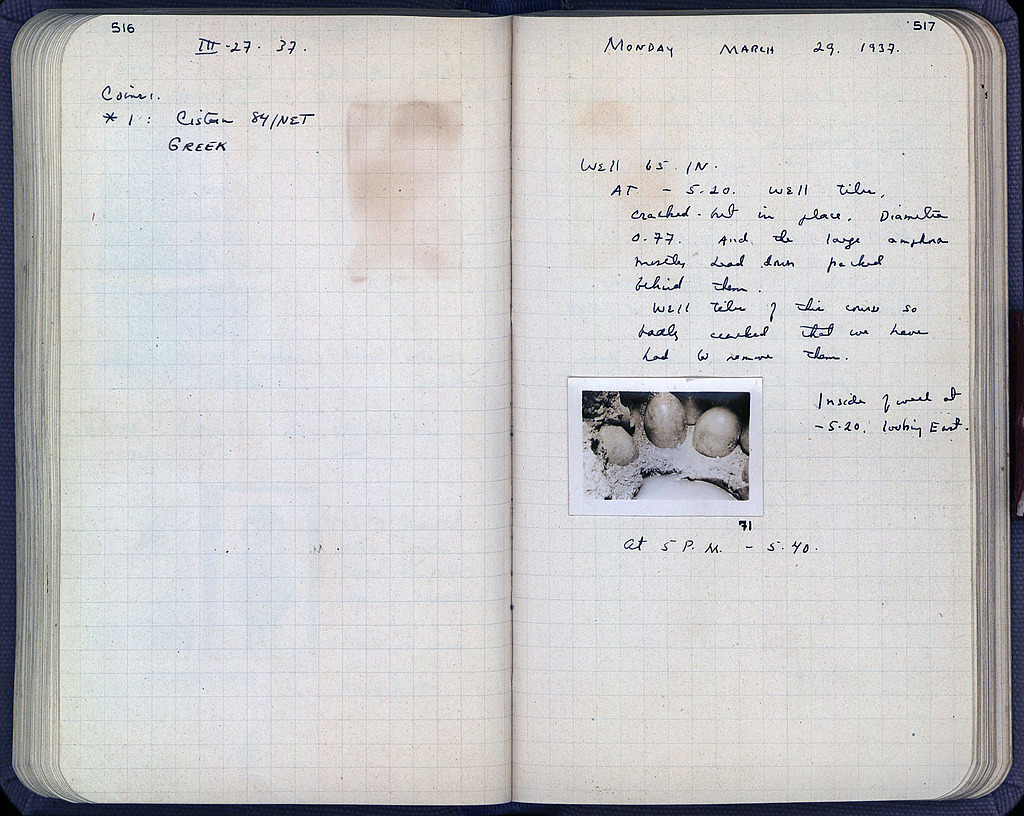 516
III-27. 37.
Coins.
* 1 : Cistern 84/NET
GREEK
517
MONDAY MARCH 29. 1937.
Well 65 IN.
AT - 5.20. Well tiles,
cracked. but in place. Diameter
0.77. And the large amphora
mostly head down packed
behind them.
Well tiles of this course so
badly cracked that we have
had to remove them.
Inside of well at
-5.20. looking East.
71
At 5 P.M. - 5.40.